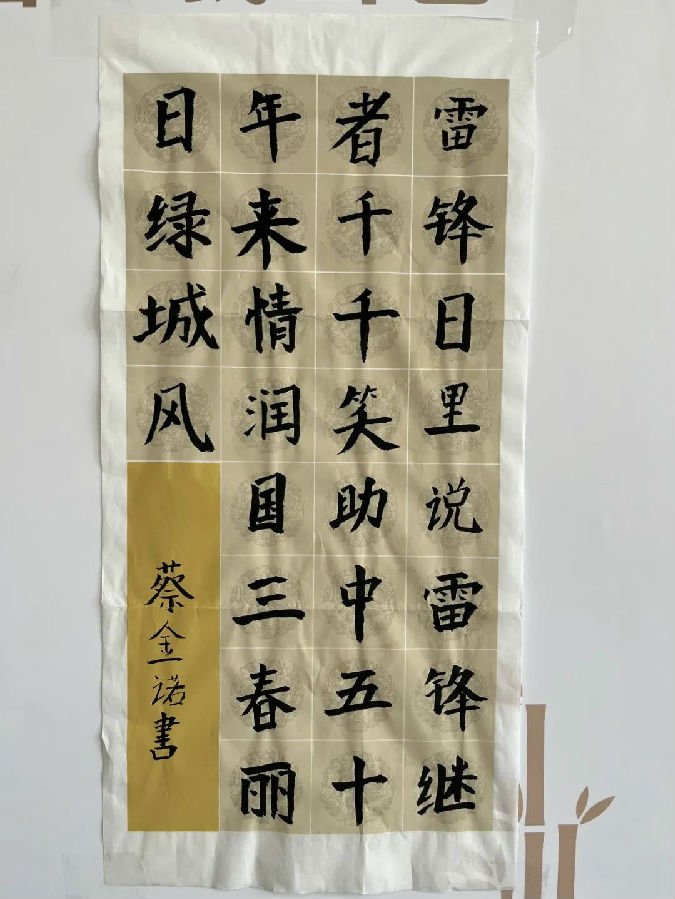 雷锋日里说雷锋继
者千千笑助中五十
年来情润国三春丽
日绿城风
蔡金诺書